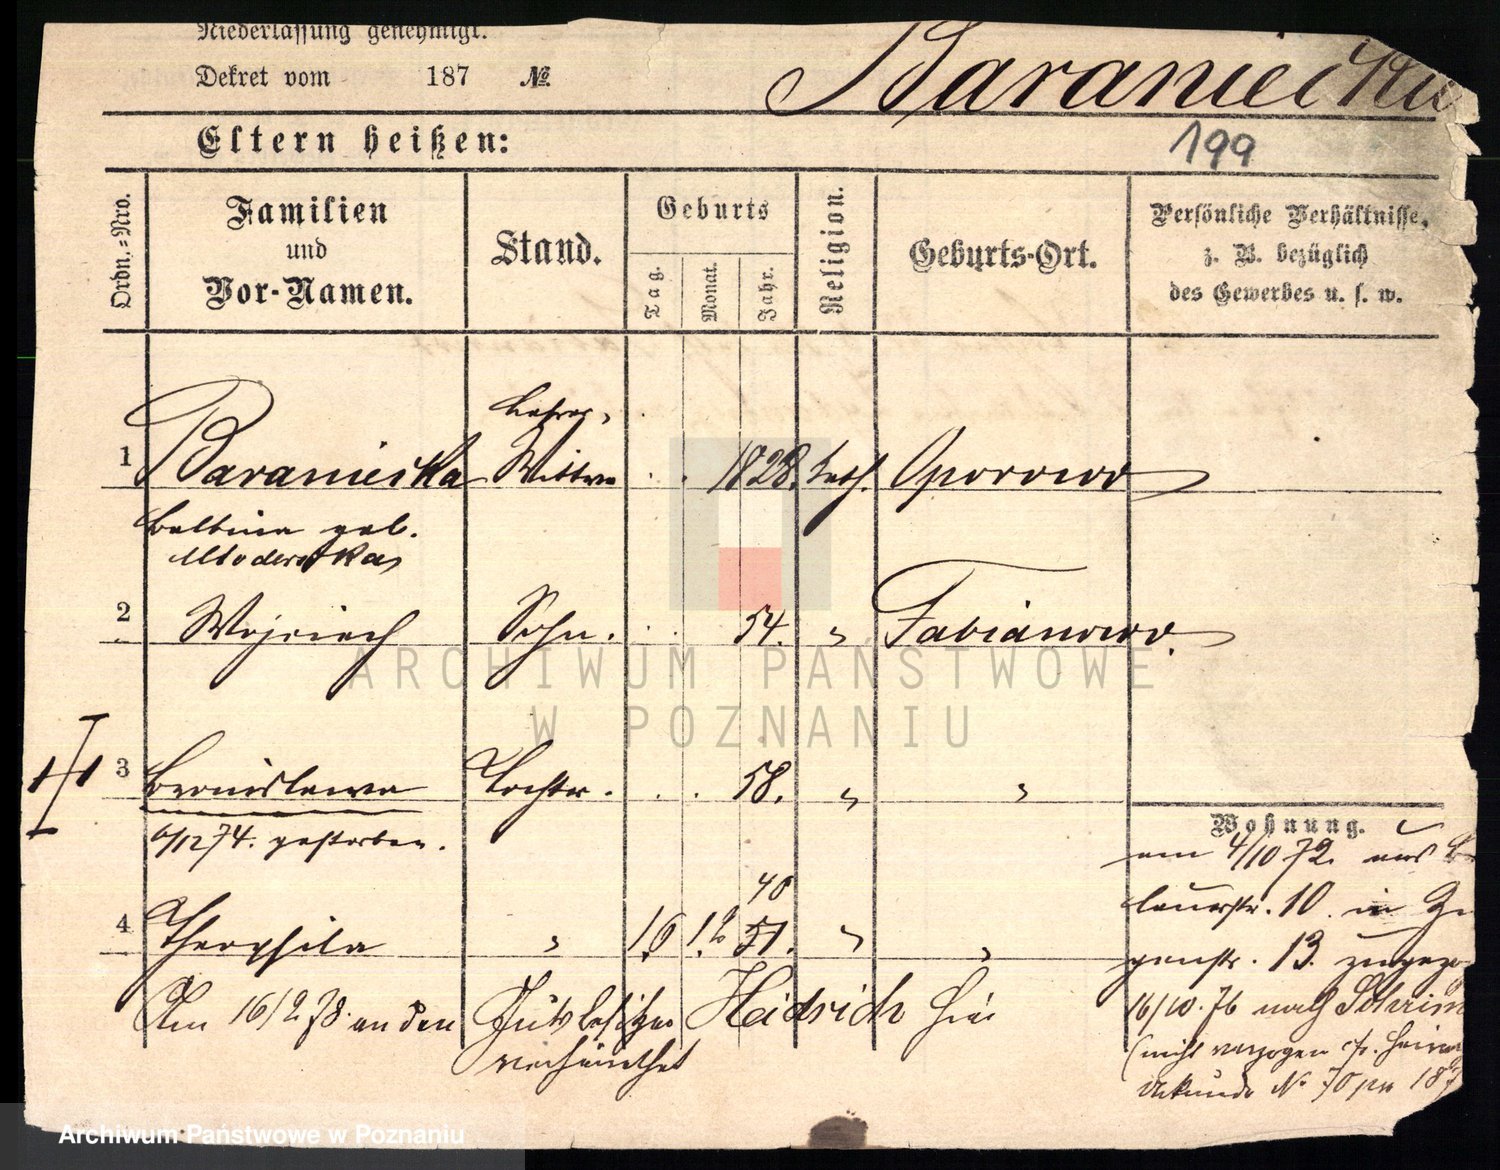 Niederlassung genehmigt.
Dekret vom 187 №
Baraniecka
199
Eltern heißen:
Ordn.=Nro.
Familien
und
Vor-Namen.
Stand.
Geburts
Tag.
Monat.
Jahr.
Religion.
Geburts-Ort.
Persönliche Verhältnisse,
z. B. bezüglich
des Gewerbes u. s. w.
Lehrer,
1 Baraniecka Wittwe 1828. kath. Oporowo
geb.
Mlodewska
2 Wojciech Sohn. 54. " Fabianowo.
3 Bronislawa Tochter. 58. " "
6/12 74. gestorben.
Wohnung.
am 4/10 72. aus
str. 10. in
40
4 Theophila " 16 12 51. " "
str. 13. zugezo
Am 16/2 78. an den Gutsbesitzer Heidrich hier
verheirathet
16/10. 76 nach Schrim
(nicht verzogen cfr. Heira
Urkunde № 70 pro 187
ARCHIWUM PAŃSTWOWE
W POZNANIU
Archiwum Państwowe w Poznaniu